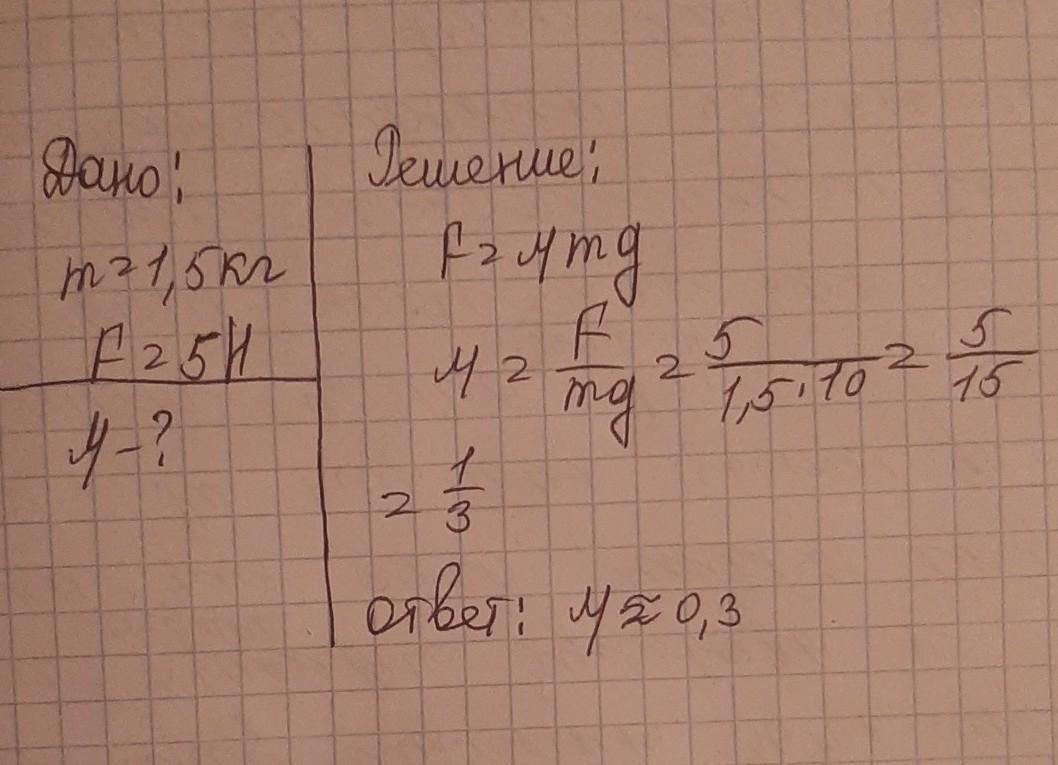 Дано:
m = 1,5 кг
F = 5 Н
μ - ?
Решение:
F = μmg
μ = F/mg = 5/1,5·10 = 5/15
= 1/3
Ответ: μ ≈ 0,3